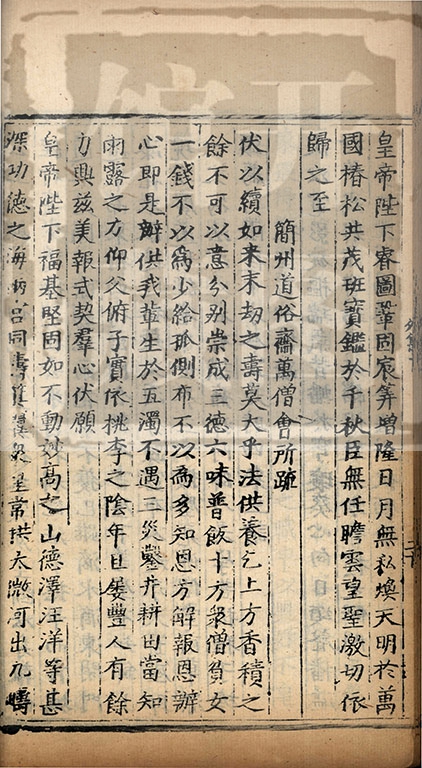 皇帝陛下睿圖鞏固宸筭增隆日月無私煥天明於萬
國椿松共茂班寶鑑於千秋臣無任瞻雲望聖激切依
歸之至
簡州道俗齋萬僧會所䟽
伏以續如来末劫之壽莫大乎法供養乞上方香積之
餘不可以意分别崇成三德六味普飯十方衆僧貧女
一錢不以為少給孤側布不以為多知恩方解報恩辦
心即是辦供我輩生於五濁不遇三災鑿井耕田當知
雨露之方仰父俯子實依桃李之陰年旦屡豐人有餘
力興兹美報式契羣心伏願
皇帝陛下福基堅固如不動妙高之山德澤汪洋等甚
深功德之海 吕同壽 衆星常拱太微河出九疇